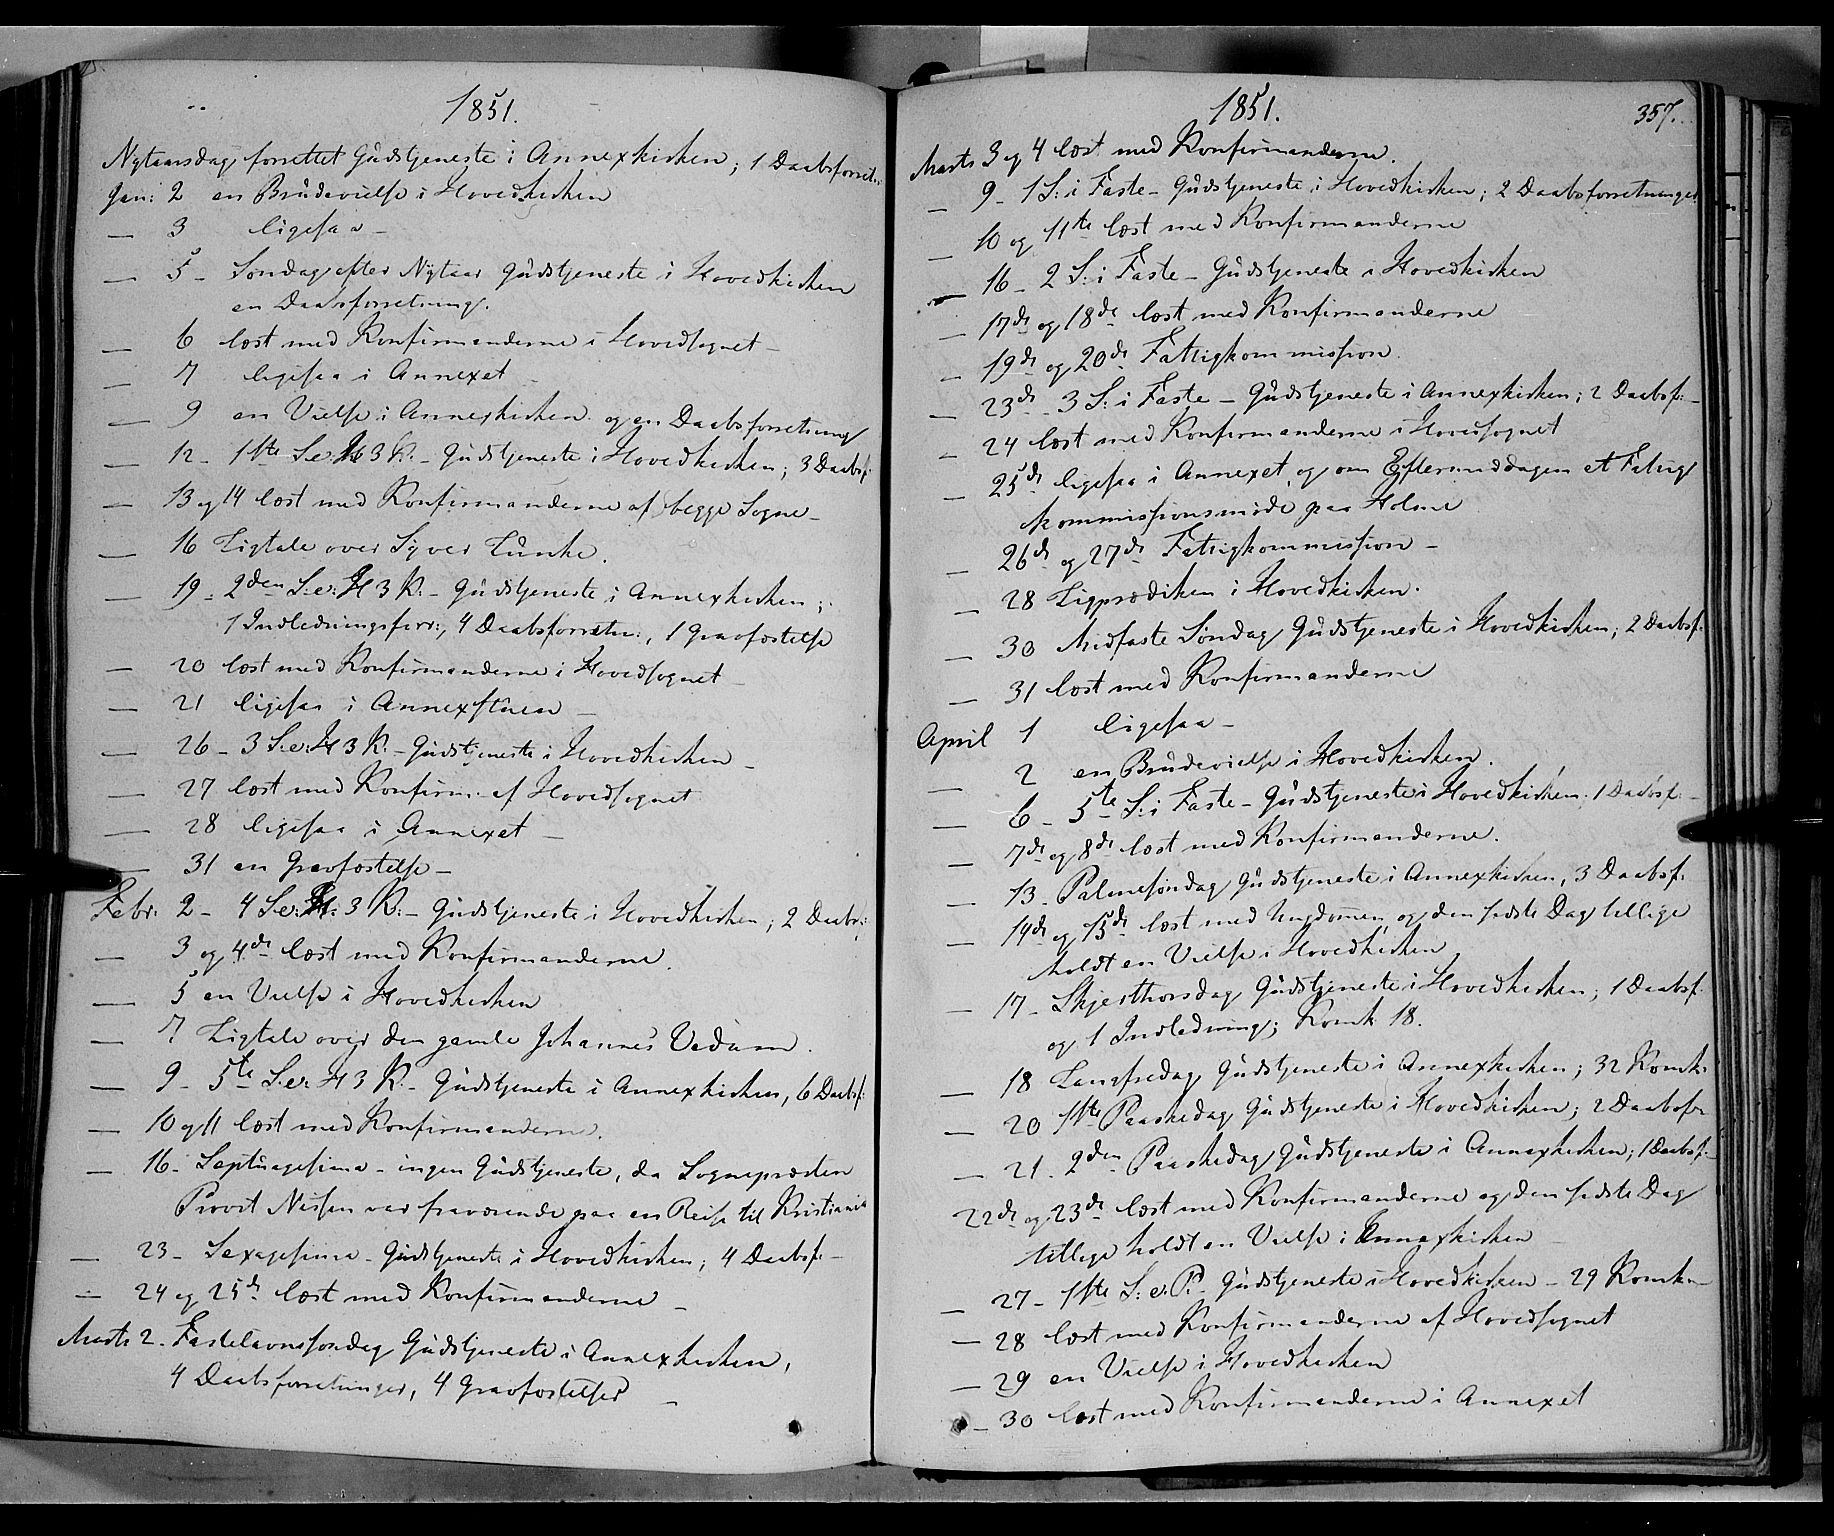 1851.
Nytaarsdag forrettet Gudstjeneste i Annexkirken; 1 Daabsforret:
Jan: 2 en Brudevielse i Hovedkirken
— 3 ligesaa —
— 5 — Søndag efter Nytaar Gudstjeneste i Hovedkirken
en Daabsforretning.
— 6 læst med Konfirmanderne i Hovedsognet —
— 7 ligesaa i Annexet —
— 9 en Vielse i Annexkirken og en Daabsforretning
— 12 — 1ste S. e. H 3 K. — Gudstjeneste i Hovedkirken; 3 Daabsf:
— 13 og 14 læst med Konfirmanderne af begge Sogne —
— 16 Ligtale over Syver Lunke.
— 19 — 2den S: e: H 3 K: — Gudstjeneste i Annexkirken;
1 Indledningsforr:, 4 Daabsforretn:, 1 Gravfæstelse
— 20 læst med Konfirmanderne i Hovedsognet —
— 21 ligesaa i Annexstuen —
— 26 — 3 S. e: H 3 K: — Gudstjeneste i Hovedkirken —
— 27 læst med Konfirm: af Hovedsognet
— 28 ligesaa i Annexet —
— 31 en Gravfæstelse —
Febr: 2 — 4 S. e: H: 3 K: — Gudstjeneste i Hovedkirken; 2 Daabs:
— 3 og 4de læst med Konfirmanderne.
— 5 en Vielse i Hovedkirken
— 7 Ligtale over den gamle Johannes Vedum.
— 9 — 5te S. e: H 3 K. — Gudstjeneste i Annexkirken, 6 Daabsf:
— 10 og 11 læst med Konfirmanderne.
— 16 — Septuagesima — ingen Gudstjeneste, da Sognepræsten
Provst Nissen var fraværende paa en Reise til Kristiania
— 23 — Sexagesima — Gudstjeneste i Hovedkirken; 4 Daabsf: —
— 24 og 25de læst med Konfirmanderne —
Marts 2. Fastelavnssøndag Gudstjeneste i Annexkirken,
4 Daabsforretninger, 4 Gravfæstelser —
1851.
357.
Marts 3 og 4 læst med Konfirmanderne.
— 9 — 1 S: i Faste — Gudstjeneste i Hovedkirken; 2 Daabsforretninger
— 10 og 11te læst med Konfirmanderne
— 16 — 2 S: i Faste — Gudstjeneste i Hovedkirken
— 17de og 18de læst med Konfirmanderne
— 19de og 20de Fattigkommission.
— 23de — 3 S: i Faste — Gudstjeneste i Annexkirken; 2 Daabsf: —
— 24 læst med Konfirmanderne i Hovedsognet
— 25de ligesaa i Annexet, og om Eftermiddagen et Fattig
kommissionsmøde paa Holme
— 26de og 27de Fattigkommission —
— 28 Ligprædiken i Hovedkirken.
— 30 Midfaste Søndag Gudstjeneste i Hovedkirken; 2 Daabsf:
— 31 læst med Konfirmanderne
April 1 ligesaa —
— 2 en Brudevielse i Hovedkirken.
— 6 — 5te S: i Faste — Gudstjeneste i Hovedkirken; 1 Daabsf: —
— 7de og 8de læst med Konfirmanderne.
— 13. Palmesøndag Gudstjeneste i Annexkirken, 3 Daabsf.
— 14de og 15de læst med Ungdommen og den sidste Dag tillige
holdt en Vielse i Hovedkirken
— 17 — Skjærthorsdag Gudstjeneste i Hovedkirken; 1 Daabsf.
og 1 Indledning; Komk. 18.
— 18 Langfredag Gudstjeneste i Annexkirken; 32 Komk.
— 20 1ste Paaskedag Gudstjeneste i Hovedkirken; 2 Daabsfr
— 21. 2den Paaskedag Gudstjeneste i Annexkirken; 1 Daabsf: —
22de og 23de læst med Konfirmanderne og den sidste Dag
tillige holdt en Vielse i Annexkirken —
— 27 — 1ste S: e: P. Gudstjeneste i Hovedkirken — 29 Komk —
— 28 læst med Konfirmanderne af Hovedsognet
— 29 en Vielse i Hovedkirken
— 30 læst med Konfirmanderne i Annexet